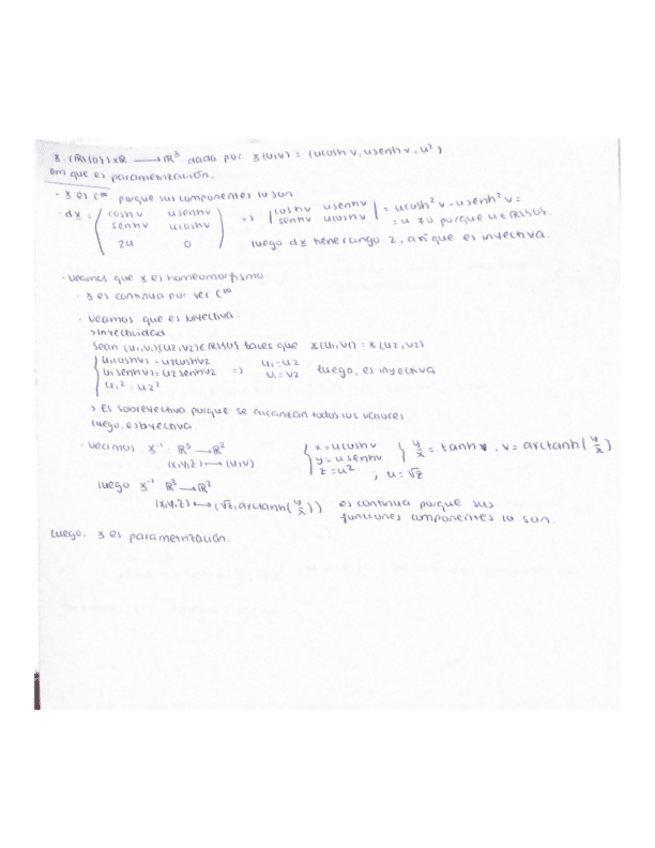 𝕏: (ℝ\{0})×ℝ → ℝ³ dada por 𝕏(u,v) = (ucosh v, usenh v, u²)
Dm que es parametrización.
· 𝕏 es C∞ porque sus componentes lo son
· d𝕏 = ( cosh v usenh v ; senh v ucosh v ; 2u 0 ) => | cosh v usenh v ; senh v ucosh v | = ucosh² v - usenh² v =
= u ≠ 0 porque u ∈ ℝ\{0}.
luego d𝕏 tiene rango 2, así que es inyectiva.
· Veamos que 𝕏 es homeomorfismo.
· 𝕏 es continua por ser C∞
· Veamos que es biyectiva.
> Inyectividad
Sean (u₁,v₁)(u₂,v₂) ∈ ℝ\{0} tales que 𝕏(u₁,v₁) = 𝕏(u₂,v₂)
{ u₁coshv₁ = u₂coshv₂
u₁senhv₁ = u₂senhv₂ => u₁ = u₂
u₁ = v₂ luego, es inyectiva
u₁² = u₂²
> Es sobreyectiva porque se alcanzan todos los valores
luego, es biyectiva.
· Veamos 𝕏⁻¹: ℝ³ → ℝ² { x = ucosh v { y/x = tanh v, v = arctanh(y/x)
(x,y,z) ↦ (u,v) y = usenh v
z = u² ; u = √z
luego 𝕏⁻¹: ℝ³ → ℝ²
(x,y,z) ↦ (√z, arctanh(y/x)) es continua porque sus
funciones componentes lo son.
Luego, 𝕏 es parametrización.